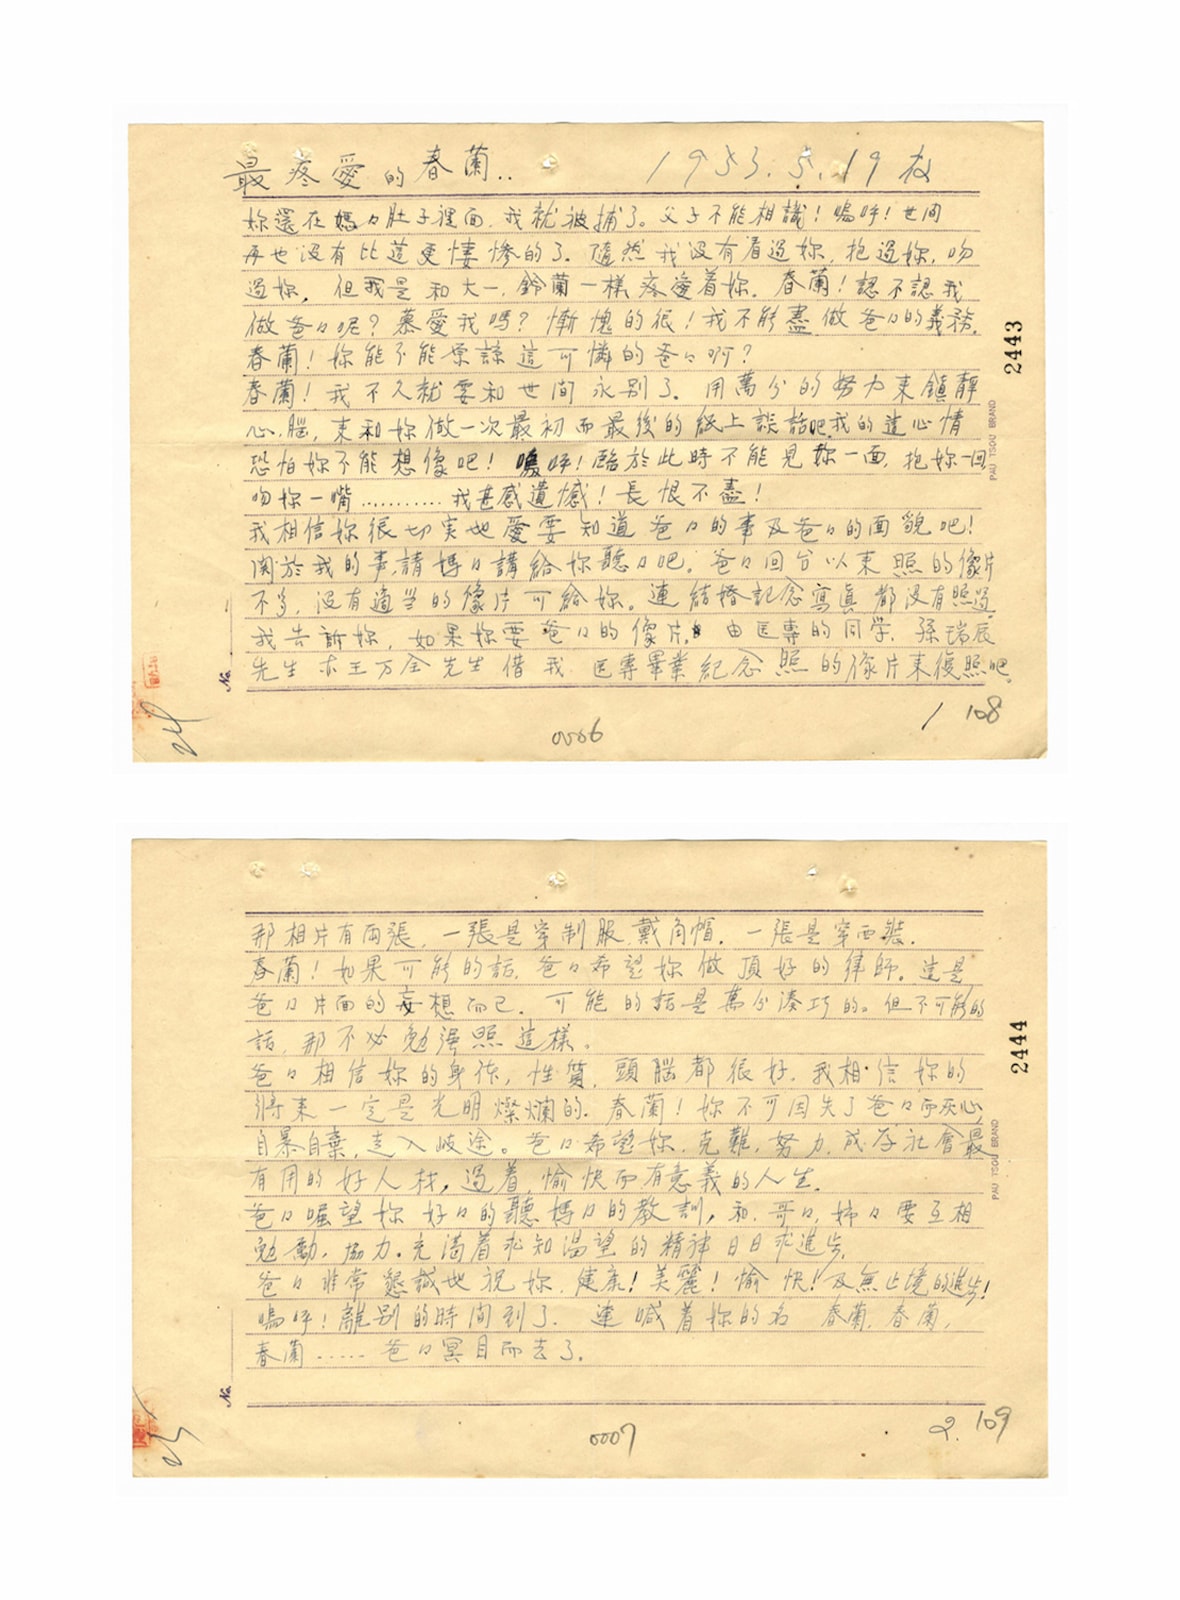 最疼愛的春蘭..　1953.5.19夜
妳還在媽々肚子裡面，我就被捕了。父子不能相識！嗚呼！世間
再也沒有比這更悽慘的了。雖然我沒有看過妳，抱過妳，吻
過妳，但我是和大一，鈴蘭一樣疼愛着妳。春蘭！認不認我
做爸々呢？慕愛我嗎？慚愧的很！我不能盡做爸々的義務。
春蘭！妳能不能原諒這可憐的爸々啊？
春蘭！我不久就要和世間永別了。用萬分的努力來鎮靜
心腦，來和妳做一次最初而最後的紙上談話吧。我的這心情
恐怕妳不能想像吧！嗚呼！臨於此時不能見妳一面，抱妳一回
吻妳一嘴...........我甚感遺憾！長恨不盡！
我相信妳很切实地愛要知道爸々的事及爸々的面貌吧！
関於我的事，請媽々講給妳聽々吧。爸々回台以來照的像片
不多，沒有適当的像片可給妳。連結婚記念寫眞都沒有照過
我告訴妳，如果妳要爸々的像片，由医專的同学，孫瑞辰
先生 王万全先生借我医專畢業紀念照的像片來復照吧。
2443
PAU TSOU BRAND
No.
0006
1　108
那相片有両張，一張是穿制服，戴角帽，一張是穿西裝.
春蘭！如果可能的話，爸々希望妳做頂好的律師。這是
爸々片面的妄想而已，可能的話是萬分湊巧的。但不可能的
話，那不必勉强照這樣。
爸々相信妳的身体，性質，頭腦都很好，我相信妳的
將來一定是光明燦爛的，春蘭！妳不可因失了爸々而灰心，
自暴自棄，走入岐途。爸々希望妳，克難，努力，成為社會最
有用的好人材，過着愉快而有意義的人生.
爸々囑望妳好々的聽媽々的教訓，和哥々，姉々要互相
勉勵，協力。充滿着求知渴望的精神日日求進步.
爸々非常懇誠地祝妳健康！美麗！愉快！及無止境的進步！
嗚呼！離别的時間到了，連喊着妳的名　春蘭，春蘭，
春蘭.....爸々冥目而去了.
2444
PAU TSOU BRAND
No.
0007
2. 109